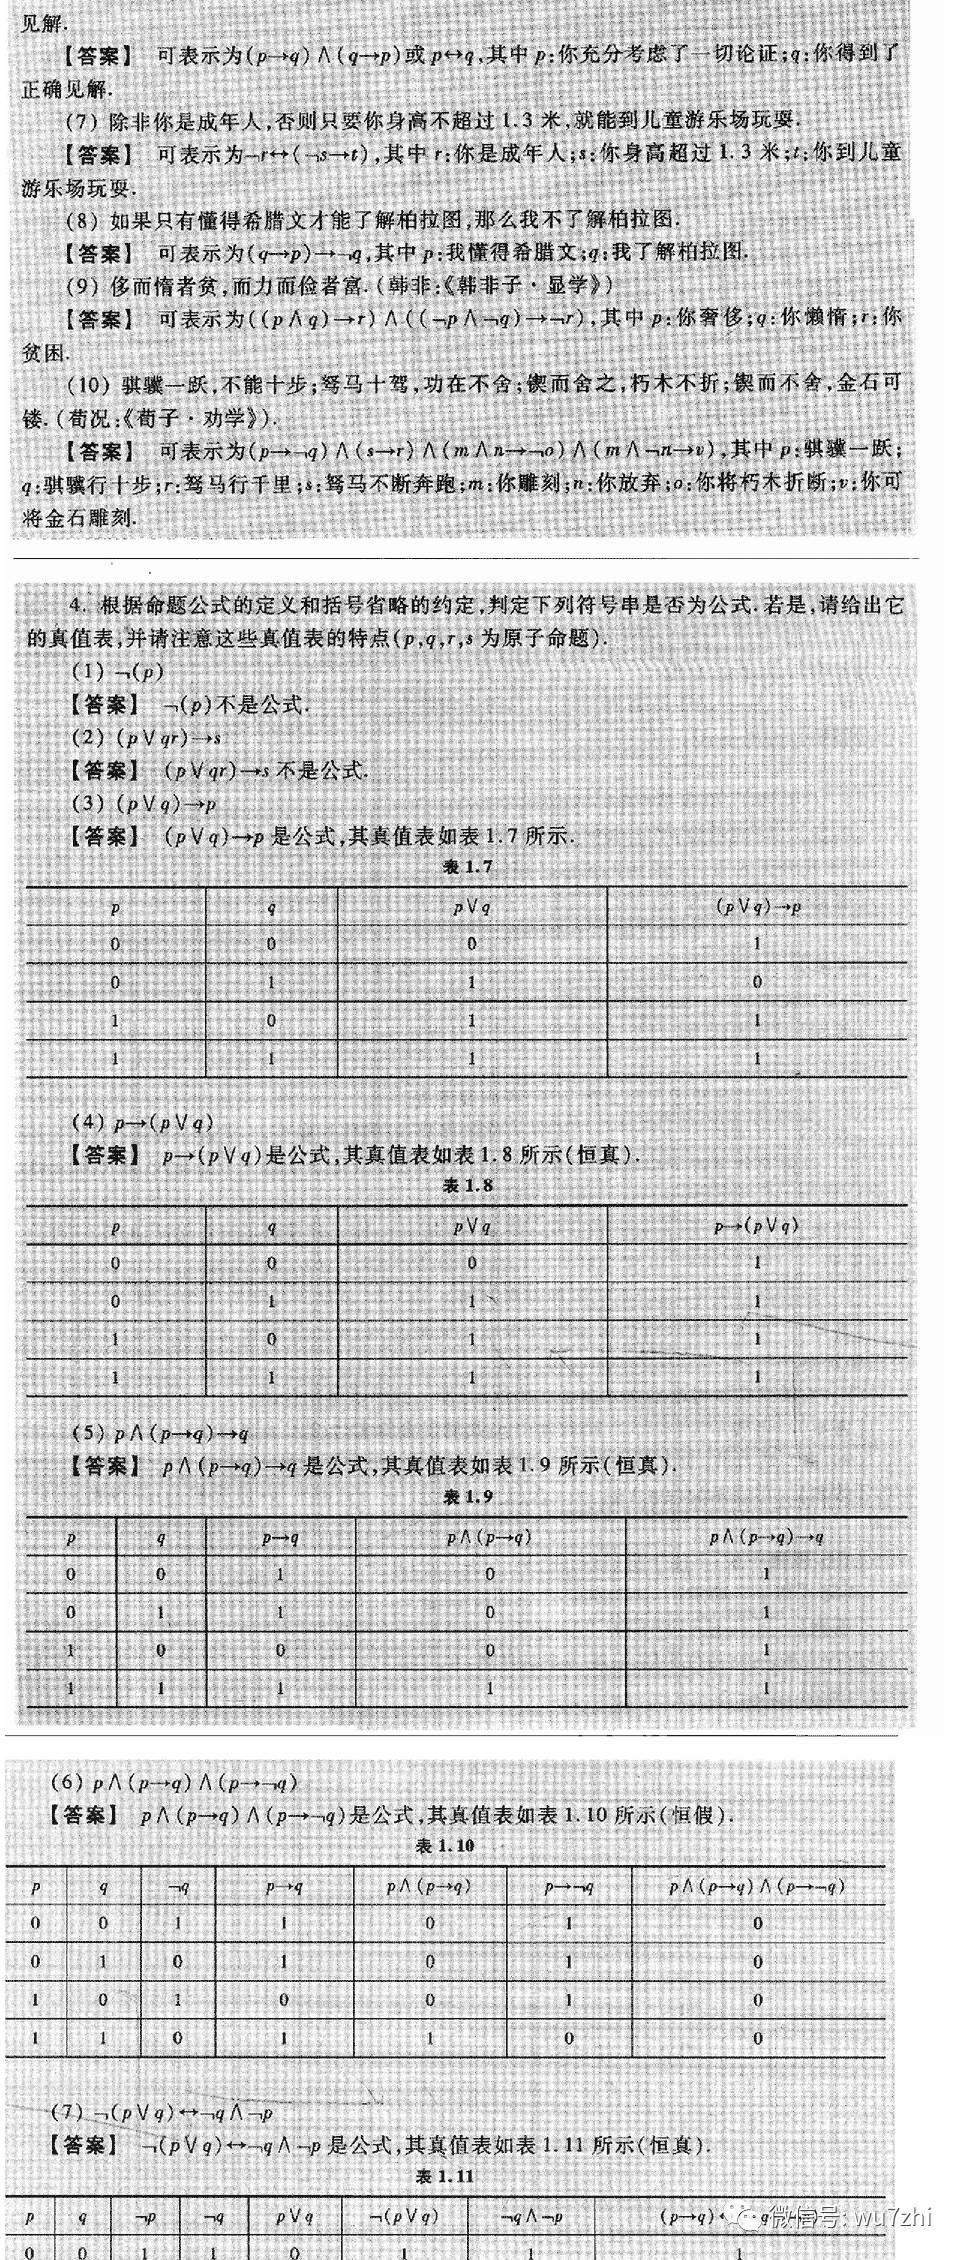 见解.
【答案】 可表示为(p→q)∧(q→p)或p↔q,其中p:你充分考虑了一切论证;q:你得到了
正确见解.
(7) 除非你是成年人,否则只要你身高不超过1.3米,就能到儿童游乐场玩耍.
【答案】 可表示为¬r↔(¬s→t),其中r:你是成年人;s:你身高超过1.3米;t:你到儿童
游乐场玩耍.
(8) 如果只有懂得希腊文才能了解柏拉图,那么我不了解柏拉图.
【答案】 可表示为(q→p)→¬q,其中p:我懂得希腊文;q:我了解柏拉图.
(9) 侈而惰者贫,而力而俭者富.(韩非:《韩非子·显学》)
【答案】 可表示为((p∧q)→r)∧((¬p∧¬q)→¬r),其中p:你奢侈;q:你懒惰;r:你
贫困.
(10) 骐骥一跃,不能十步;驽马十驾,功在不舍;锲而舍之,朽木不折;锲而不舍,金石可
镂.(荀况:《荀子·劝学》).
【答案】 可表示为(p→¬q)∧(s→r)∧(m∧n→¬o)∧(m∧¬n→v),其中p:骐骥一跃;
q:骐骥行十步;r:驽马行千里;s:驽马不断奔跑;m:你雕刻;n:你放弃;o:你将朽木折断;v:你可
将金石雕刻.
4. 根据命题公式的定义和括号省略的约定,判定下列符号串是否为公式.若是,请给出它
的真值表,并请注意这些真值表的特点(p,q,r,s为原子命题).
(1) ¬(p)
【答案】 ¬(p)不是公式.
(2) (p∨qr)→s
【答案】 (p∨qr)→s不是公式.
(3) (p∨q)→p
【答案】 (p∨q)→p是公式,其真值表如表1.7所示.
表1.7
p q p∨q (p∨q)→p
0 0 0 1
0 1 1 0
1 0 1 1
1 1 1 1
(4) p→(p∨q)
【答案】 p→(p∨q)是公式,其真值表如表1.8所示(恒真).
表1.8
p q p∨q p→(p∨q)
0 0 0 1
0 1 1 1
1 0 1 1
1 1 1 1
(5) p∧(p→q)→q
【答案】 p∧(p→q)→q是公式,其真值表如表1.9所示(恒真).
表1.9
p q p→q p∧(p→q) p∧(p→q)→q
0 0 1 0 1
0 1 1 0 1
1 0 0 0 1
1 1 1 1 1
(6) p∧(p→q)∧(p→¬q)
【答案】 p∧(p→q)∧(p→¬q)是公式,其真值表如表1.10所示(恒假).
表1.10
p q ¬q p→q p∧(p→q) p→¬q p∧(p→q)∧(p→¬q)
0 0 1 1 0 1 0
0 1 0 1 0 1 0
1 0 1 0 0 1 0
1 1 0 1 1 0 0
(7) ¬(p∨q)↔¬q∧¬p
【答案】 ¬(p∨q)↔¬q∧¬p是公式,其真值表如表1.11所示(恒真).
表1.11
p q ¬p ¬q p∨q ¬(p∨q) ¬q∧¬p (p→q)
0 0 1 1 0 1 1 1
微信号: wu7zhi